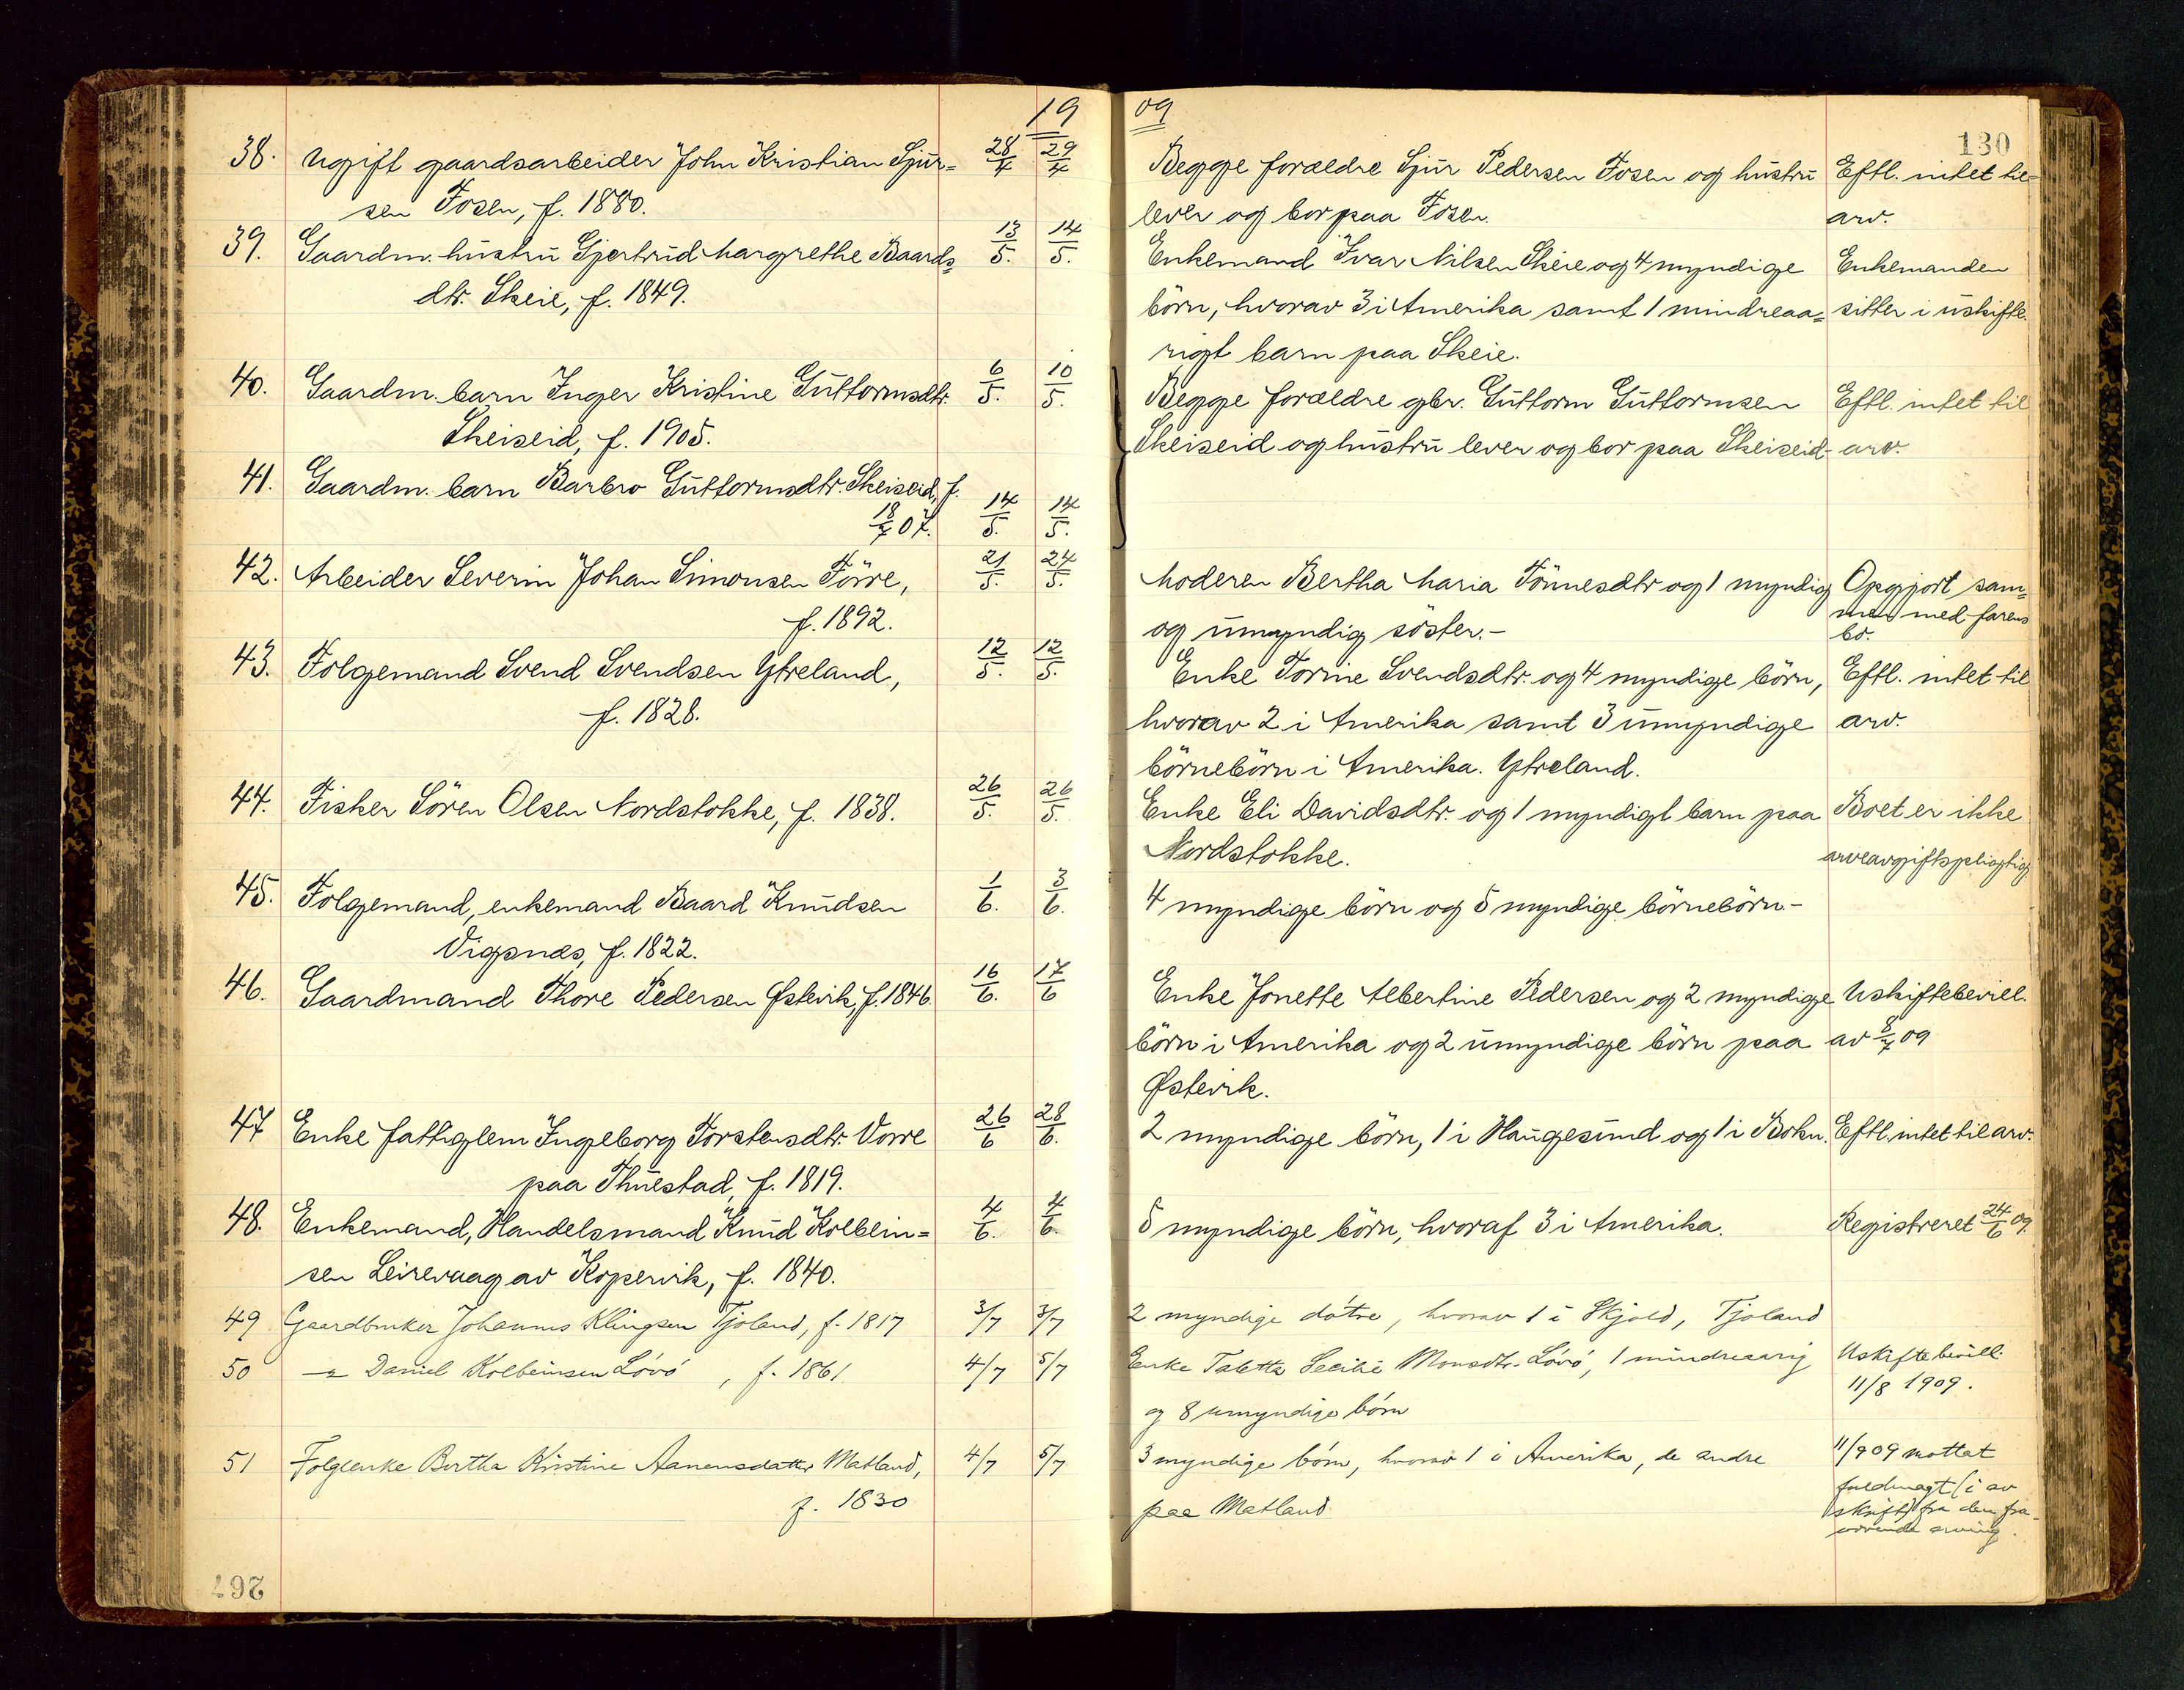 19 09
130
38. Ugift gaardsarbeider John Kristian Sjur= 28/4 29/4 Begge forældre Sjur Pedersen Fosen og hustru Eftl. intet til
sen Fosen, f. 1880. lever og bor paa Fosen. arv.
39. Gaardm. hustru Gjertrud Margrethe Baards= 13/5. 14/5. Enkemand Ivar Nilsen Skeie og 4 myndige Enkemanden
dtr. Skeie, f. 1849. börn, hvorav 3 i Amerika samt 1 mindreaa= sitter i uskifte.
rigt barn paa Skeie.
40. Gaardm. barn Inger Kristine Guttormsdtr. 6/5. 10/5. Begge forældre gbr. Guttorm Guttormsen Eftl. intet til
Skeiseid, f. 1905. Skeiseid og hustru lever og bor paa Skeiseid. arv.
41. Gaardm. barn Barbro Guttormsdtr. Skeiseid, f.
18/7 07. 14/5. 14/5.
42. Arbeider Severin Johan Simonsen Förre, 21/5. 24/5. Moderen Bertha Maria Tönnesdtr og 1 myndig Opgjort sam=
f. 1892. og umyndig söster.- men med farens
bo.
43. Folgemand Svend Svendsen Ytreland, 12/5. 12/5. Enke Torine Svendsdtr. og 4 myndige börn, Eftl. intet til
f. 1828. hvorav 2 i Amerika samt 3 umyndige arv.
börnebörn i Amerika. Ytreland.
44. Fisker Sören Olsen Nordstokke, f. 1838. 26/5. 26/5. Enke Eli Davidsdtr. og 1 myndigt barn paa Boet er ikke
Nordstokke. arveavgiftspligtig
45. Folgemand, enkemand Baard Knudsen 1/6. 3/6. 4 myndige börn og 5 myndige börnebörn.-
Vigsnæs, f. 1822.
46. Gaardmand Thore Pedersen Østevik, f. 1846. 16/6. 17/6 Enke Jonette Albertine Pedersen og 2 myndige Uskiftebevill.
börn i Amerika og 2 umyndige börn paa av 8/7 09
Østevik.
47 Enke fattiglem Ingeborg Torstensdtr. Vorre 26/6 28/6. 2 myndige börn, 1 i Haugesund og 1 i Bokn. Eftl. intet til arv.
paa Thuestad, f. 1819.
48. Enkemand, Handelsmand Knud Kolbein= 4/6. 4/6. 5 myndige börn, hvoraf 3 i Amerika. Registreret 24/6 09.
sen Leirevaag av Kopervik, f. 1840.
49 Gaardbruker Johannes Klingsen Tjoland, f. 1817 3/7 3/7 2 myndige døtre, hvorav 1 i Skjold, Tjoland
50 Daniel Kolbeinsen Lövö, f. 1861 4/7 5/7 Enke Taletta Secilie Monsdtr. Lövö, 1 mindreaarig Uskiftebevill.
11/8 1909.
og 8 umyndige börn
51 Folgeenke Bertha Kristine Aanensdatter Matland, 4/7 5/7 3 myndige börn, hvorav 1 i Amerika, de andre 11/9 09 mottat
f. 1830 paa Matland fuldmagt (i av
skrift) fra den fra-
værende arving.
267